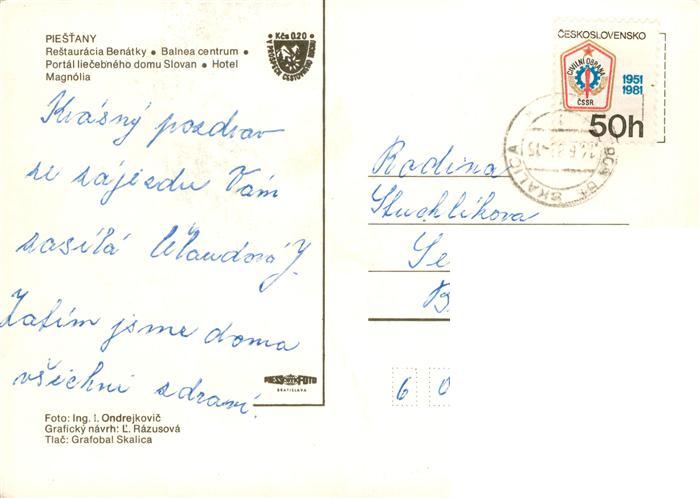 PIEŠŤANY
Reštaurácia Benátky • Balnea centrum •
Portál liečebného domu Slovan • Hotel
Magnólia
Kčs 0.20
V PROSPECH CESTOVNÉHO RUCHU
Krásný pozdrav
ze zájezdu Vám
zasílá
Zatím jsme doma
všichni zdraví.
PRESSFOTO
BRATISLAVA
Foto: Ing. I. Ondrejkovič
Grafický návrh: Ľ. Rázusová
Tlač: Grafobal Skalica
ČESKOSLOVENSKO
CIVILNÍ OBRANA
ČSSR
1951
1981
50h
SKALICA
Rodina
Stuchlíkova
Se
B
6 0